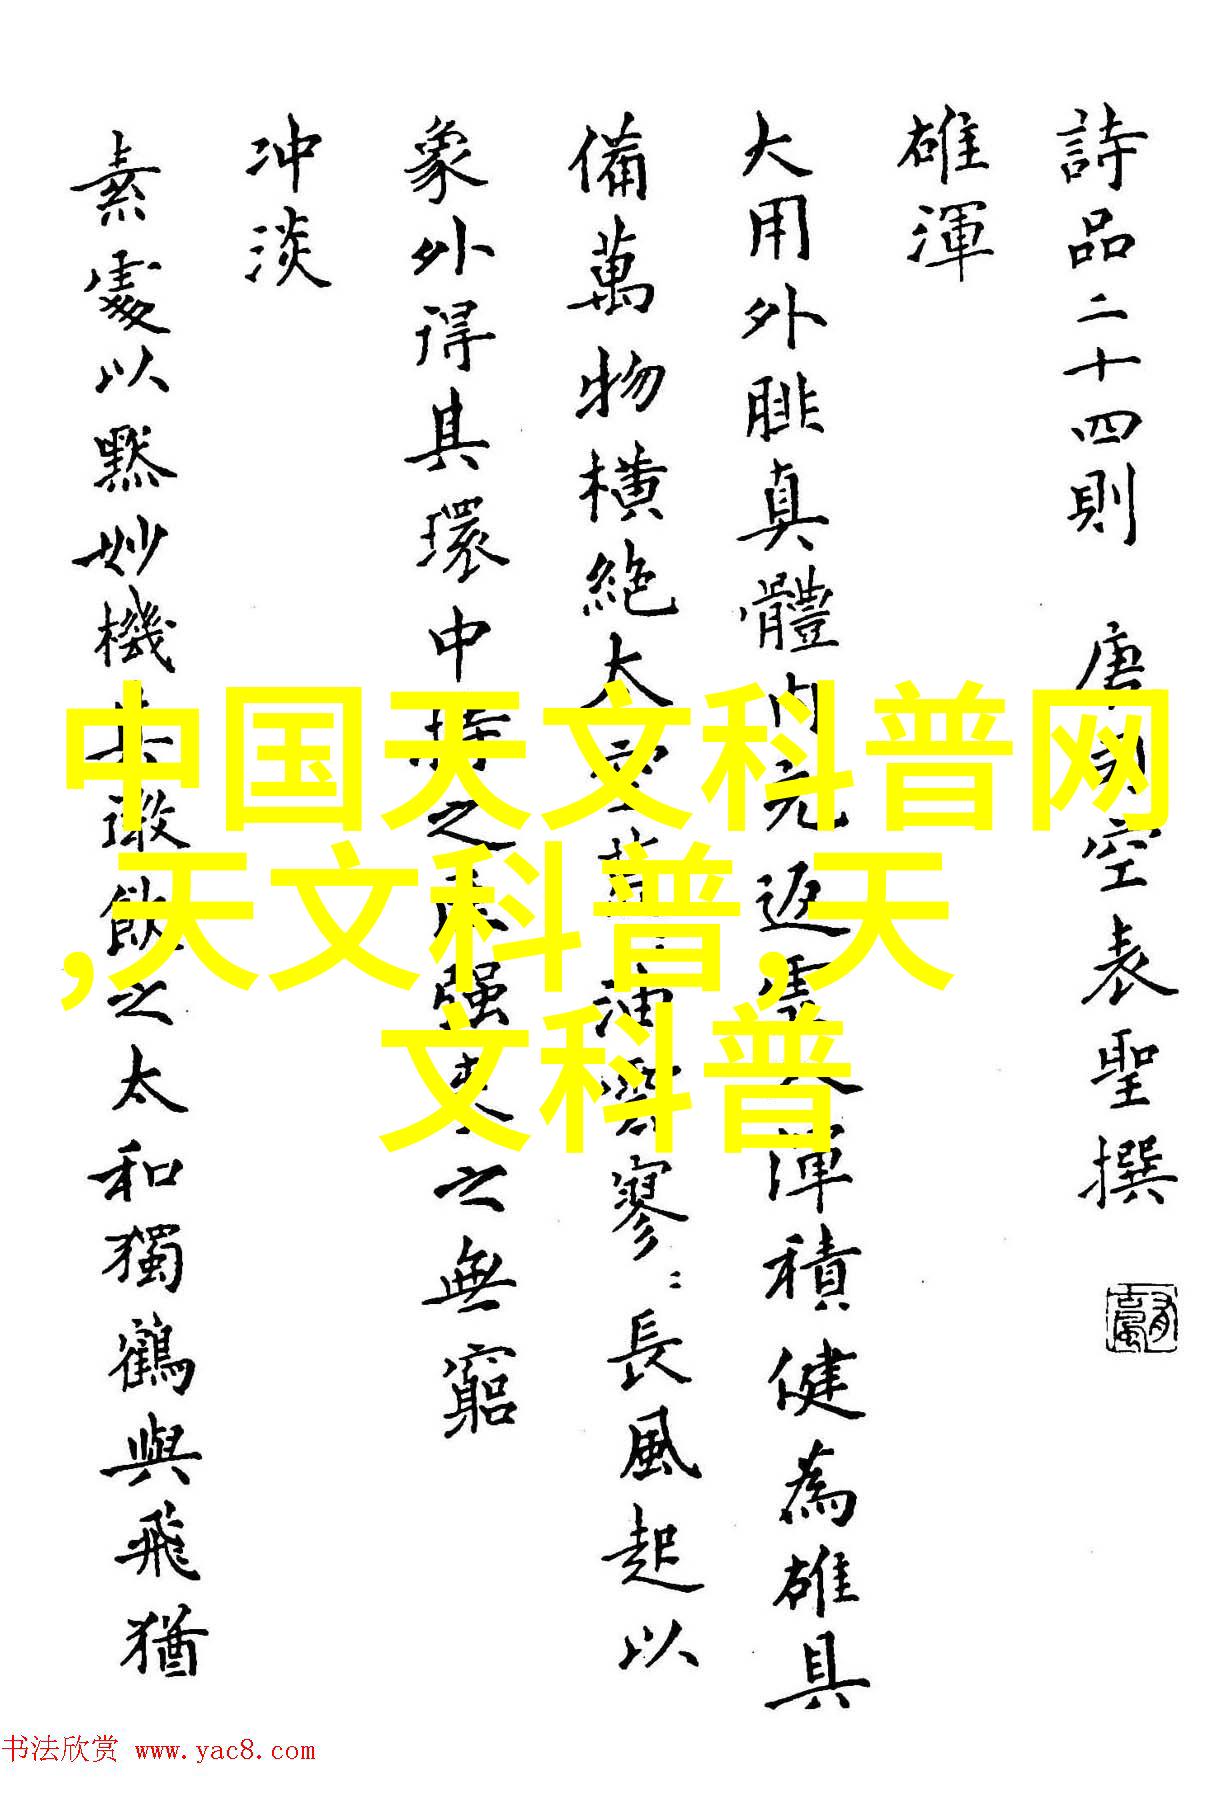 詩品二十四則 唐司空表聖撰
雄渾
大用外腓真體内充返虛入渾積健為雄具
備萬物橫絕大空荒〻油雲寥〻長風起以
象外得其環中持之匪强來之無窮
冲淡
素處以默妙機其微飲之太和獨鶴與飛猶
中国天文科普网
,天文科普,天
文科普
书法欣赏 www.yac8.com